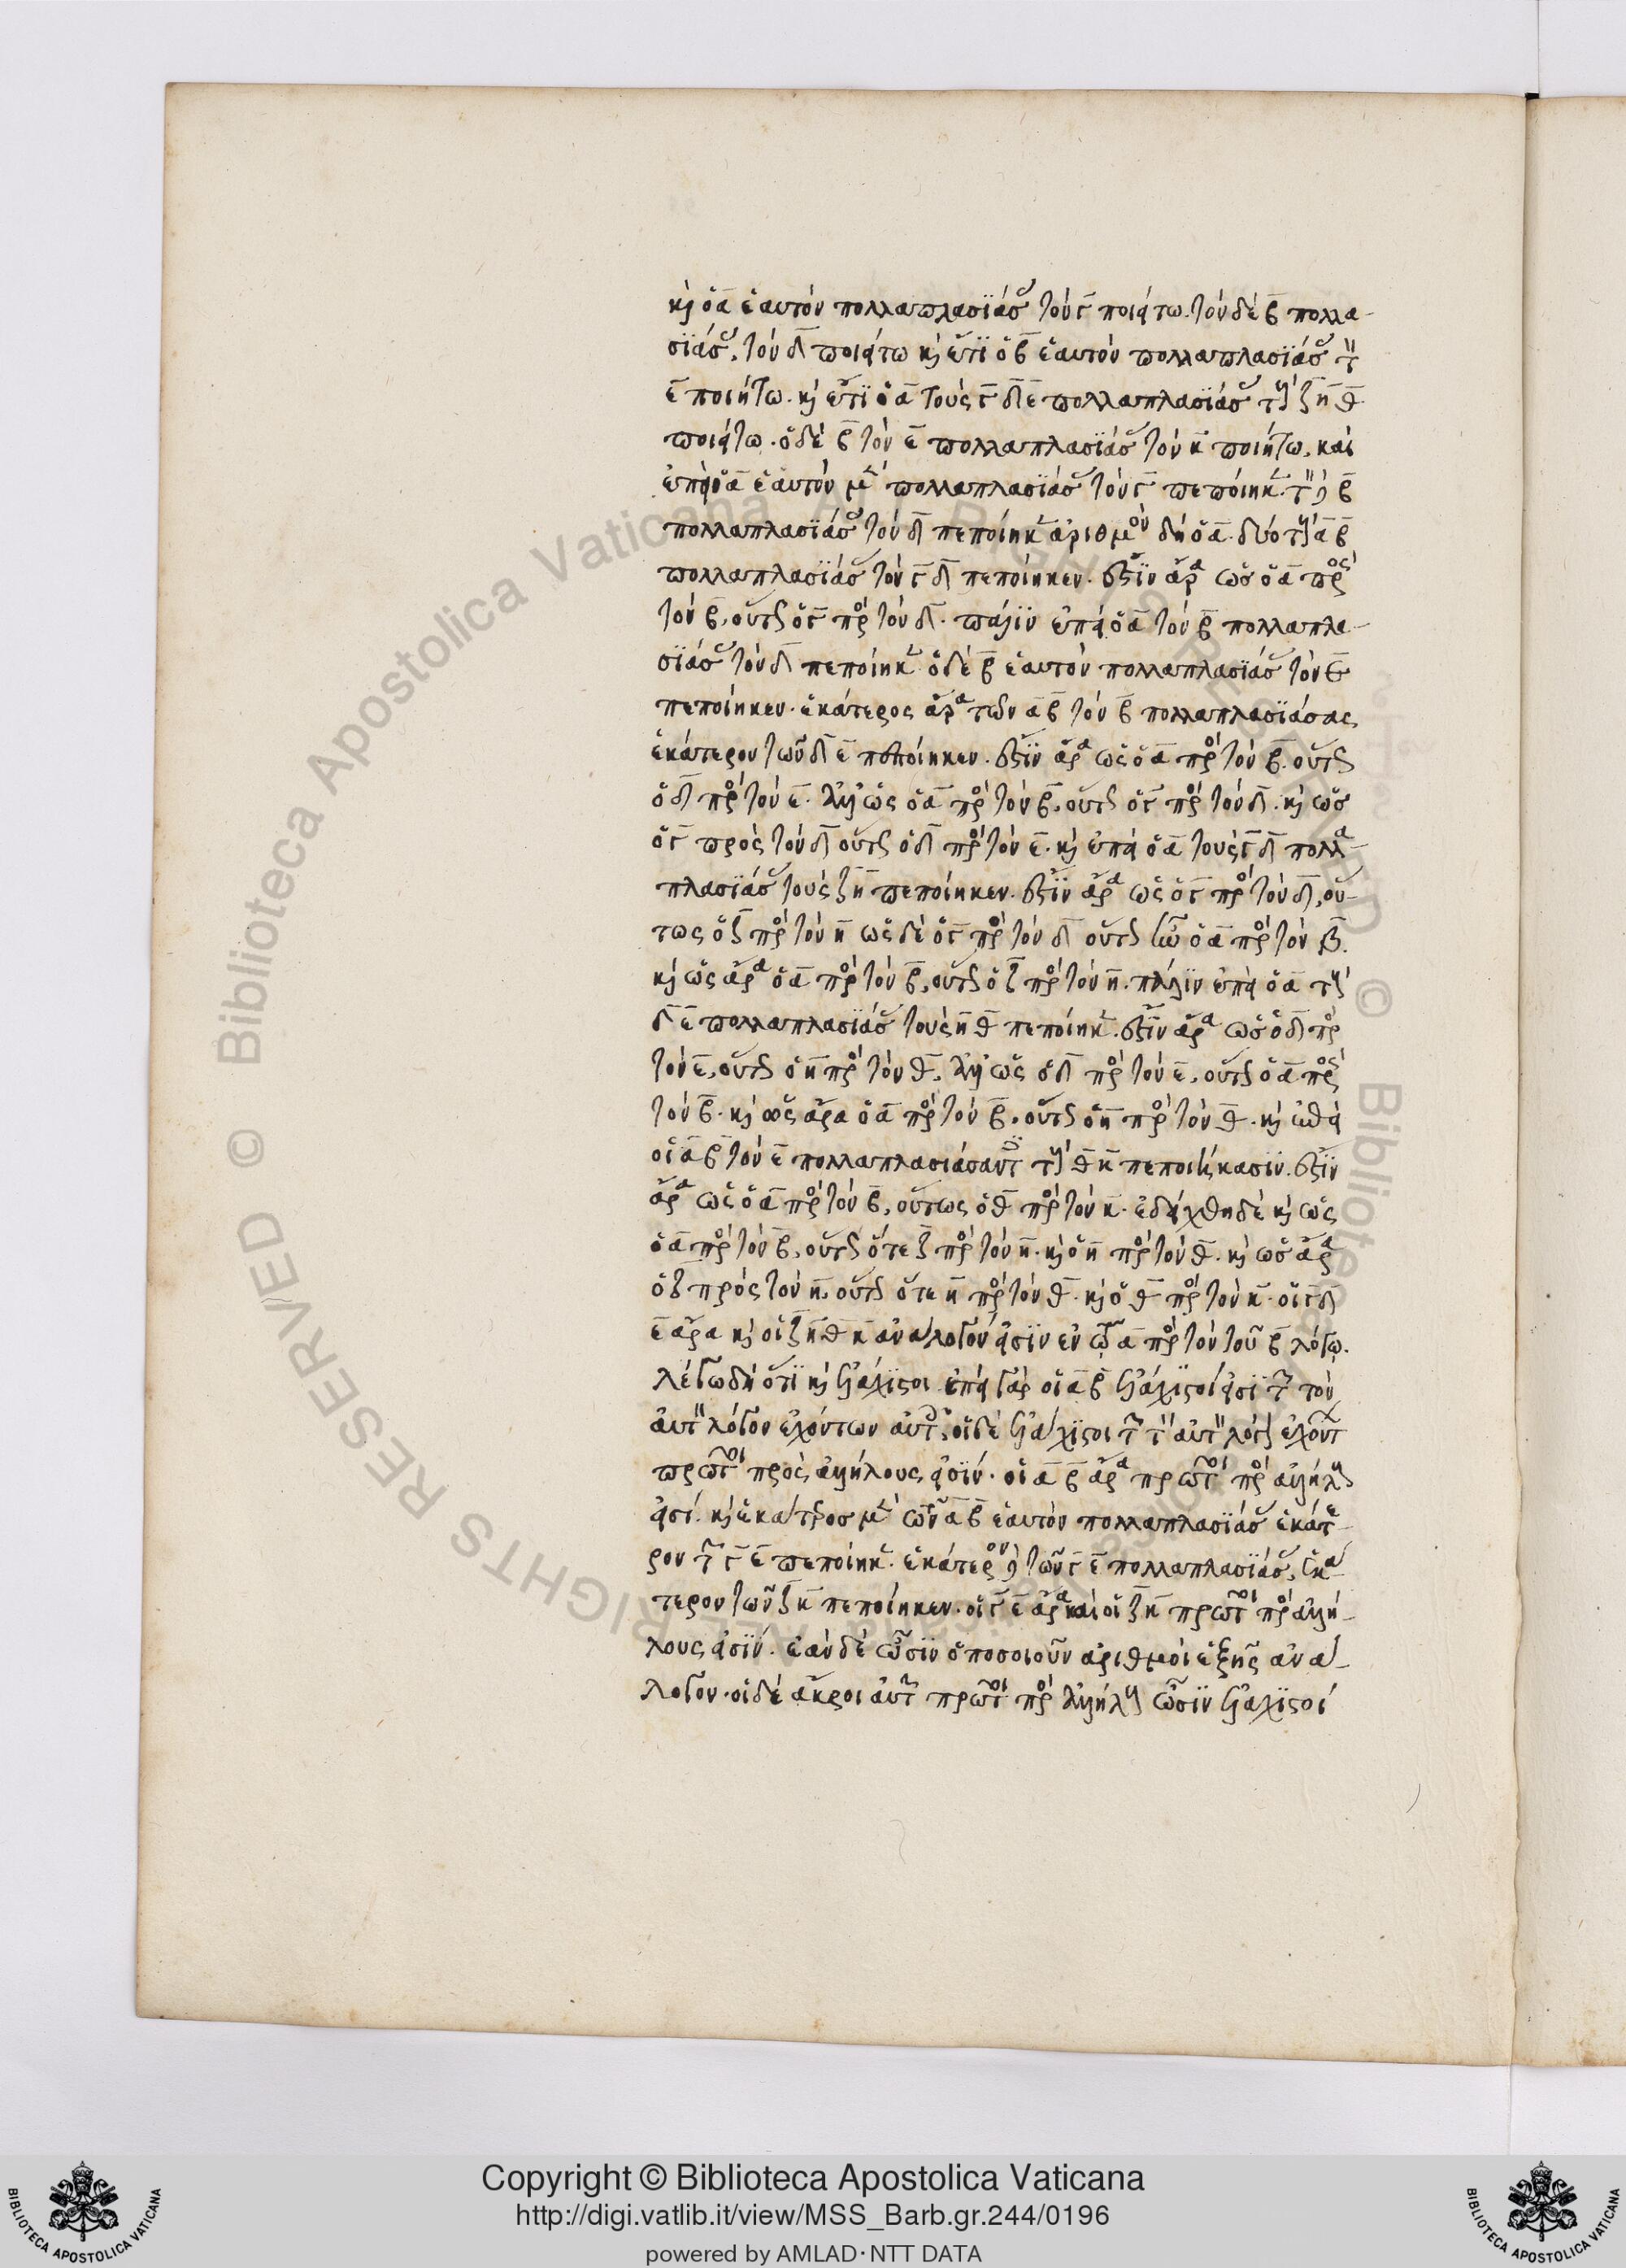 κ̀ ὁ α̅ ἑαυτὸν πολλαπλασϊάσ τὸν γ̅ ποιείτω. τὸν δὲ β̅ πολλα-
σϊάσ, τὸν δ̅ ποιείτω κ̀ ἔτϊ ὁ β̅ ἑαυτὸν πολλαπλασϊάσ τ̀
ε̅ ποιήτω. κ̀ ἔτϊ ὁ α̅ τοὺς γ̅ δ̅ ε̅ πολλαπλασϊάσ τ̀ ζ̅ η̅ θ̅
ποιείτω. ὁ δὲ β̅ τὸν ε̅ πολλαπλασϊάσ τὸν κ̅ ποιήτω. καὶ
ἐπεὶ ὁ α̅ ἑαυτὸν μ̀ πολλαπλασϊάσ τὸν γ̅ πεποίηκ. τ̀ δ̀ β̅
πολλαπλασϊάσ τὸν δ̅ πεποίηκ ἀριθμὸν δὴ ὁ α̅. δύο τ̀ α̅ β̅
πολλαπλασϊάσ τὸν γ̅ δ̅ πεποίηκεν. ἔστϊν ἄρα ὡσ ὁ α̅ πρὸς
τὸν β̅, οὕτς ὁ γ̅ πρ̀ τὸν δ̅. πάλϊν ἐπεὶ ὁ α̅ τὸν β̅ πολλαπλα-
σϊάσ τὸν δ̅ πεποίηκ ὁ δὲ β̅ ἑαυτὸν πολλαπλασϊάσ τὸν ε̅
πεποίηκεν. ἑκάτερος ἄρα τῶν α̅ β̅ τὸν β̅ πολλαπλασϊάσας
ἑκάτερον τῶν δ̅ ε̅ πεποίηκεν. ἔστϊν ἄρα ὡς ὁ α̅ πρ̀ τὸν β̅. οὕτς
ὁ δ̅ πρ̀ τὸν ε̅. ἀλλ̓ ὡς ὁ α̅ πρ̀ τὸν β̅, οὕτς ὁ γ̅ πρ̀ τὸν δ̅. κ̀ ὡσ
ὁ γ̅ πρὸς τὸν δ̅ οὕτς ὁ δ̅ πρ̀ τὸν ε̅. κ̀ ἐπεὶ ὁ α̅ τοὺς γ̅ δ̅ πολλα-
πλασϊάσ τοὺς ζ̅ η̅ πεποίηκεν. ἔστϊν ἄρα ὡς ὁ γ̅ πρ̀ τὸν δ̅, οὕ-
τως ὁ ζ̅ πρ̀ τὸν η̅ ὡς δὲ ὁ γ̅ πρ̀ τὸν δ̅ οὕτς ἦν ὁ α̅ πρ̀ τὸν β̅.
κ̀ ὡς ἄρα ὁ α̅ πρ̀ τὸν β̅, οὕτς ὁ ζ̅ πρ̀ τὸν η̅. πάλϊν ἐπεὶ ὁ α̅ τ̀
δ̅ ε̅ πολλαπλασϊάσ τοὺς η̅ θ̅ πεποίηκ. ἔστϊν ἄρα ὡσ ὁ δ̅ πρ̀
τὸν ε̅, οὕτς ὁ η̅ πρ̀ τὸν θ̅, ἀλλ̓ ὡς ὁ δ̅ πρ̀ τὸν ε̅, οὕτς ὁ α̅ πρὸς
τὸν β̅. κ̀ ὡς ἄρα ὁ α̅ πρ̀ τὸν β̅. οὕτς ὁ η̅ πρ̀ τὸν θ̅. κ̀ ἐπεὶ
οἱ α̅ β̅ τὸν ε̅ πολλαπλασιάσαντ τ̀ θ̅ κ̅ πεποιήκασϊν. ἔστϊν
ἄρα ὡς ὁ α̅ πρ̀ τὸν β̅, οὕτως ὁ θ̅ πρ̀ τὸν κ̅. ἐδείχθη δὲ κ̀ ὡς
ὁ α̅ πρ̀ τὸν β̅, οὕτς ὅ τε ζ̅ πρ̀ τὸν η̅. κ̀ ὁ η̅ πρ̀ τὸν θ̅. κ̀ ὡσ ἄρα
ὁ ζ̅ πρὸς τὸν η̅, οὕτς ὅ τε η̅ πρ̀ τὸν θ̅. κ̀ ὁ θ̅ πρ̀ τὸν κ̅. οἱ γ̅ δ̅
ε̅ ἄρα κ̀ οἱ ζ̅ η̅ θ̅ κ̅ ἀνάλογόν εἰσϊν ἐν ῷ α̅ πρ̀ τὸν τοῦ β̅ λόγῳ.
λέγω δὴ ὅτϊ κ̀ ἐλάχϊστοι ἐπεὶ γὰρ οἱ α̅ β̅ ἐλάχϊστοί εἰσϊ τ̃ τὸν
ἀυτ̀ λόγον ἐχόντων αὐτ̃, οἱ δὲ ἐλάχϊστοι τ̃ τ̀ αὐτ̀ λόγ ἐχόντ
πρῶτοι πρὸς ἀλλήλους εἰσϊν. οἱ α̅ β̅ ἄρα πρῶτοι πρ̀ ἀλλήλ
εἰσί. κ̀ ἑκάτερος μ̀ τῶν α̅ β̅ ἑαυτὸν πολλαπλασϊάσ ἑκάτε-
ρον τ̃ γ̅ ε̅ πεποίηκ. ἑκάτερον δ̀ τῶν γ̅ ε̅ πολλαπλασϊάσ, ἑκά-
τερον τῶν ζ̅ κ̅ πεποίηκεν. οἱ γ̅ ε̅ ἄρα καὶ οἱ ζ̅ κ̅ πρῶτοι πρ̀ ἀλλή-
λους εἰσϊν. ἐὰν δὲ ὦσϊν ὁποσοιοῦν ἀριθμοὶ ἑξῆς ἀνά-
λογον. οἱ δὲ ἄκροι αὐτ̃ πρῶτοι πρ̀ ἀλλήλ ὦσϊν ἐλάχϊστοί
© Biblioteca Apostolica Vaticana
RIGHTS RESERVED
Copyright © Biblioteca Apostolica Vaticana
http://digi.vatlib.it/view/MSS_Barb.gr.244/0196
powered by AMLAD·NTT DATA
BIBLIOTECA APOSTOLICA VATICANA
BIBLIOTECA APOSTOLICA VATICANA